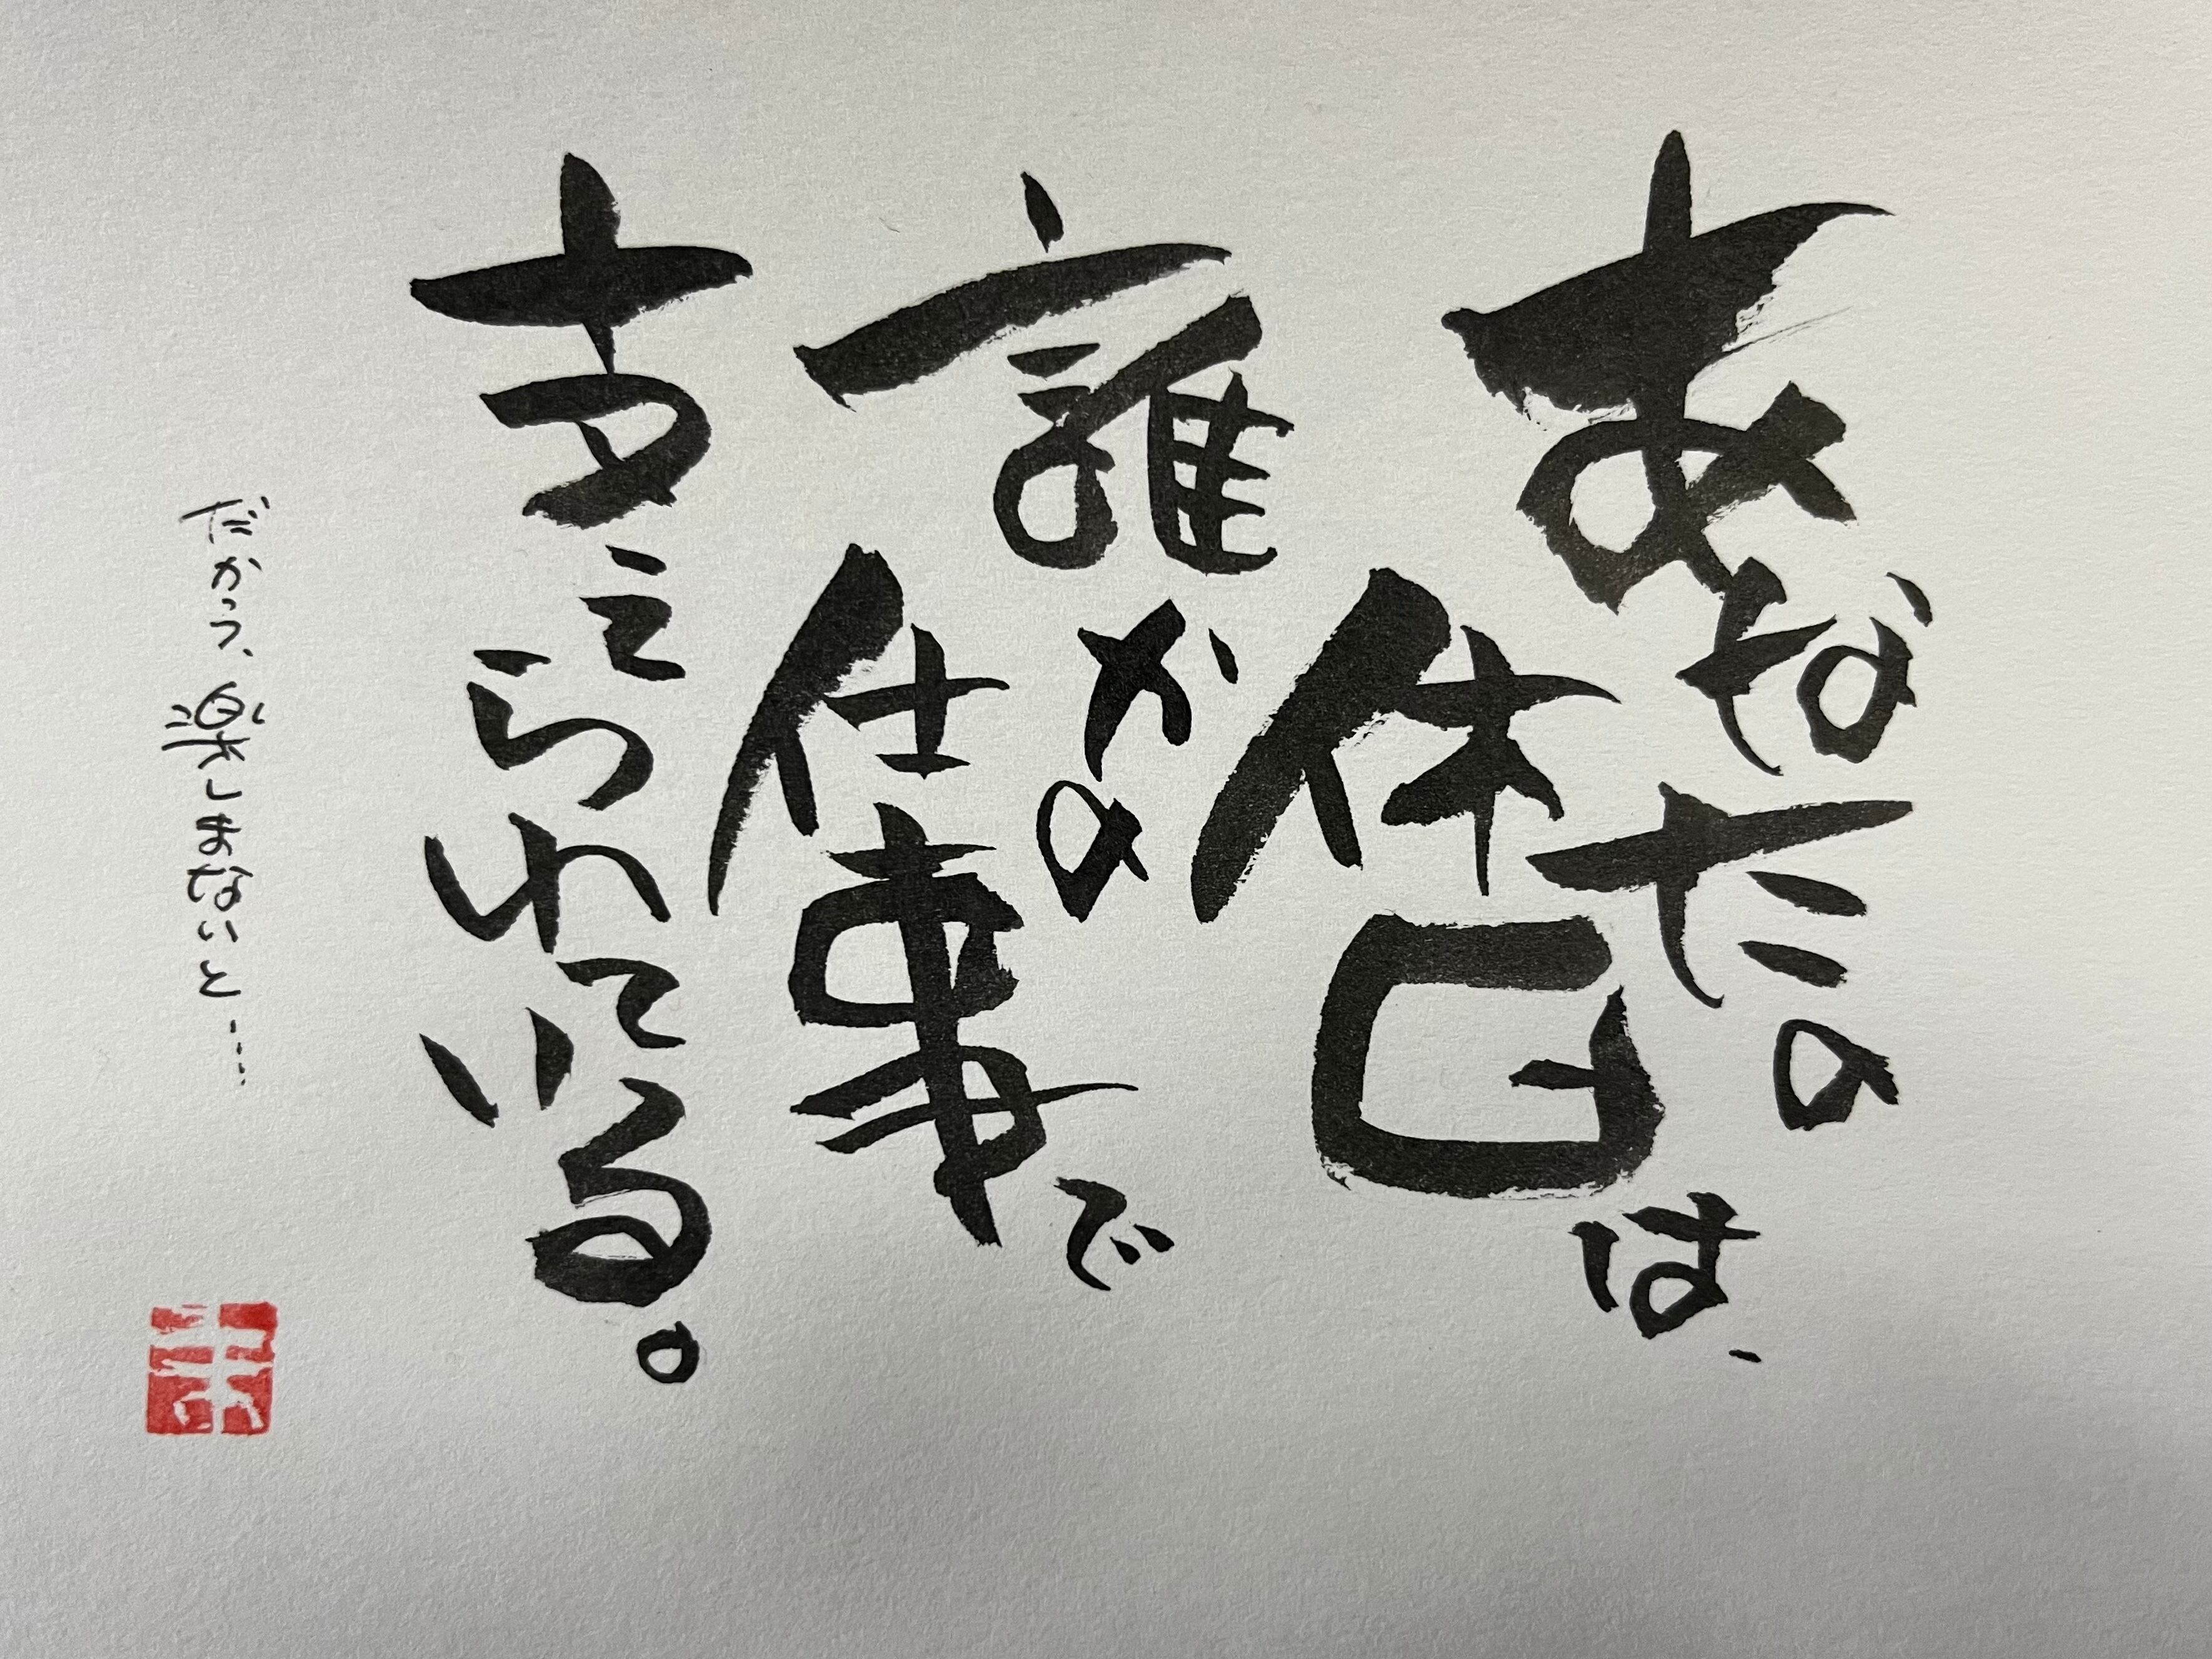 あなたの
休日は、
誰かの
仕事で
支えられている。
だから、楽しまないと……